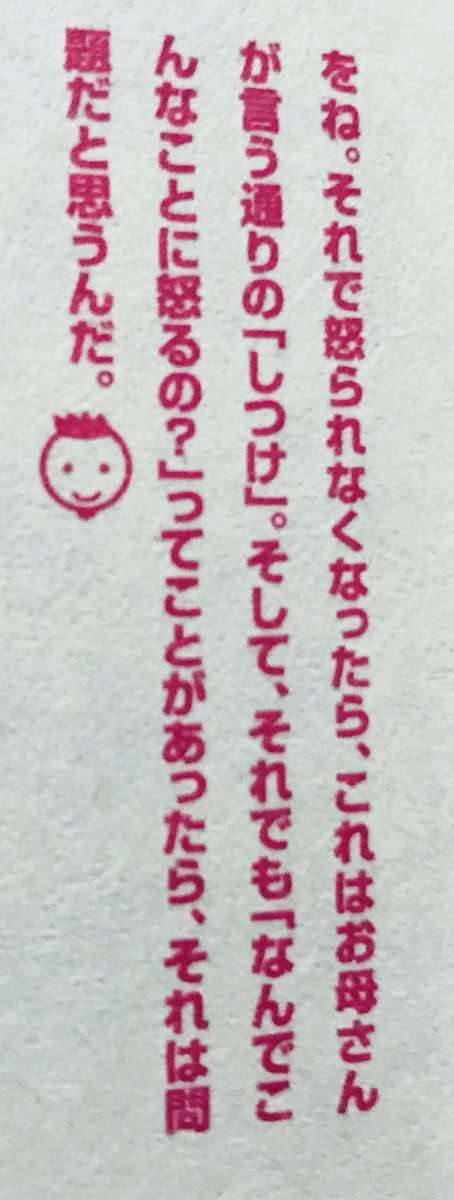 をね。それで怒られなくなったら、これはお母さん
が言う通りの「しつけ」。そして、それでも「なんでこ
んなことに怒るの?」ってことがあったら、それは問
題だと思うんだ。